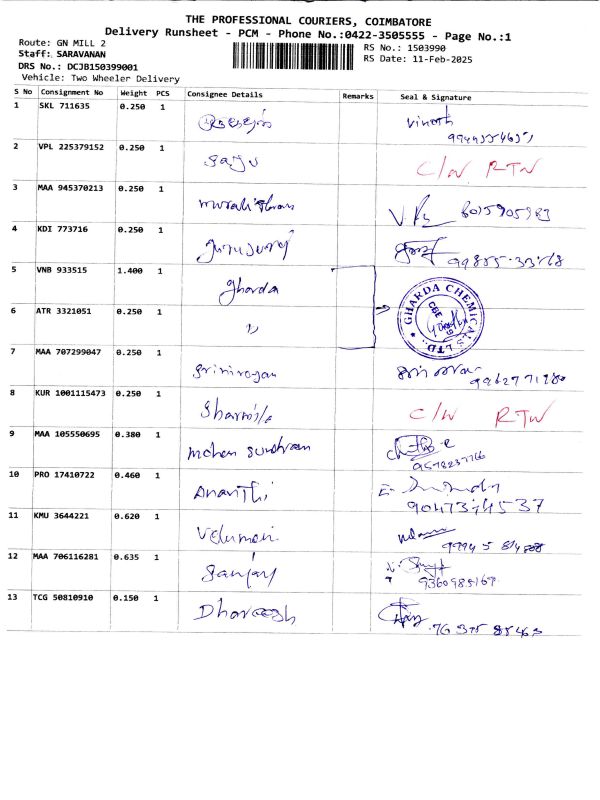 THE PROFESSIONAL COURIERS, COIMBATORE
Delivery Runsheet - PCM - Phone No.:0422-3505555 - Page No.:1
Route: GN MILL 2
RS No.: 1503990
Staff: SARAVANAN
RS Date: 11-Feb-2025
DRS No.: DCJB150399001
Vehicle: Two Wheeler Delivery
S No Consignment No Weight PCS Consignee Details Remarks Seal & Signature
1 SKL 711635 0.250 1 vinoth
2 VPL 225379152 0.250 1 Saju C/N RTN
3 MAA 945370213 0.250 1
4 KDI 773716 0.250 1
5 VNB 933515 1.400 1 Gharda
GHARDA CHEMICALS LTD.
CBE
6 ATR 3321051 0.250 1 "
7 MAA 707299047 0.250 1 Srinivasan
8 KUR 1001115473 0.250 1 C/N RTN
9 MAA 105550695 0.380 1 mohan Sundram 9578237766
10 PRO 17410722 0.460 1 Ananthi
11 KMU 3644221 0.620 1 Velumani
12 MAA 706116281 0.635 1 Sanjay 9360985169
13 TCG 50810910 0.150 1 Dhaneesh